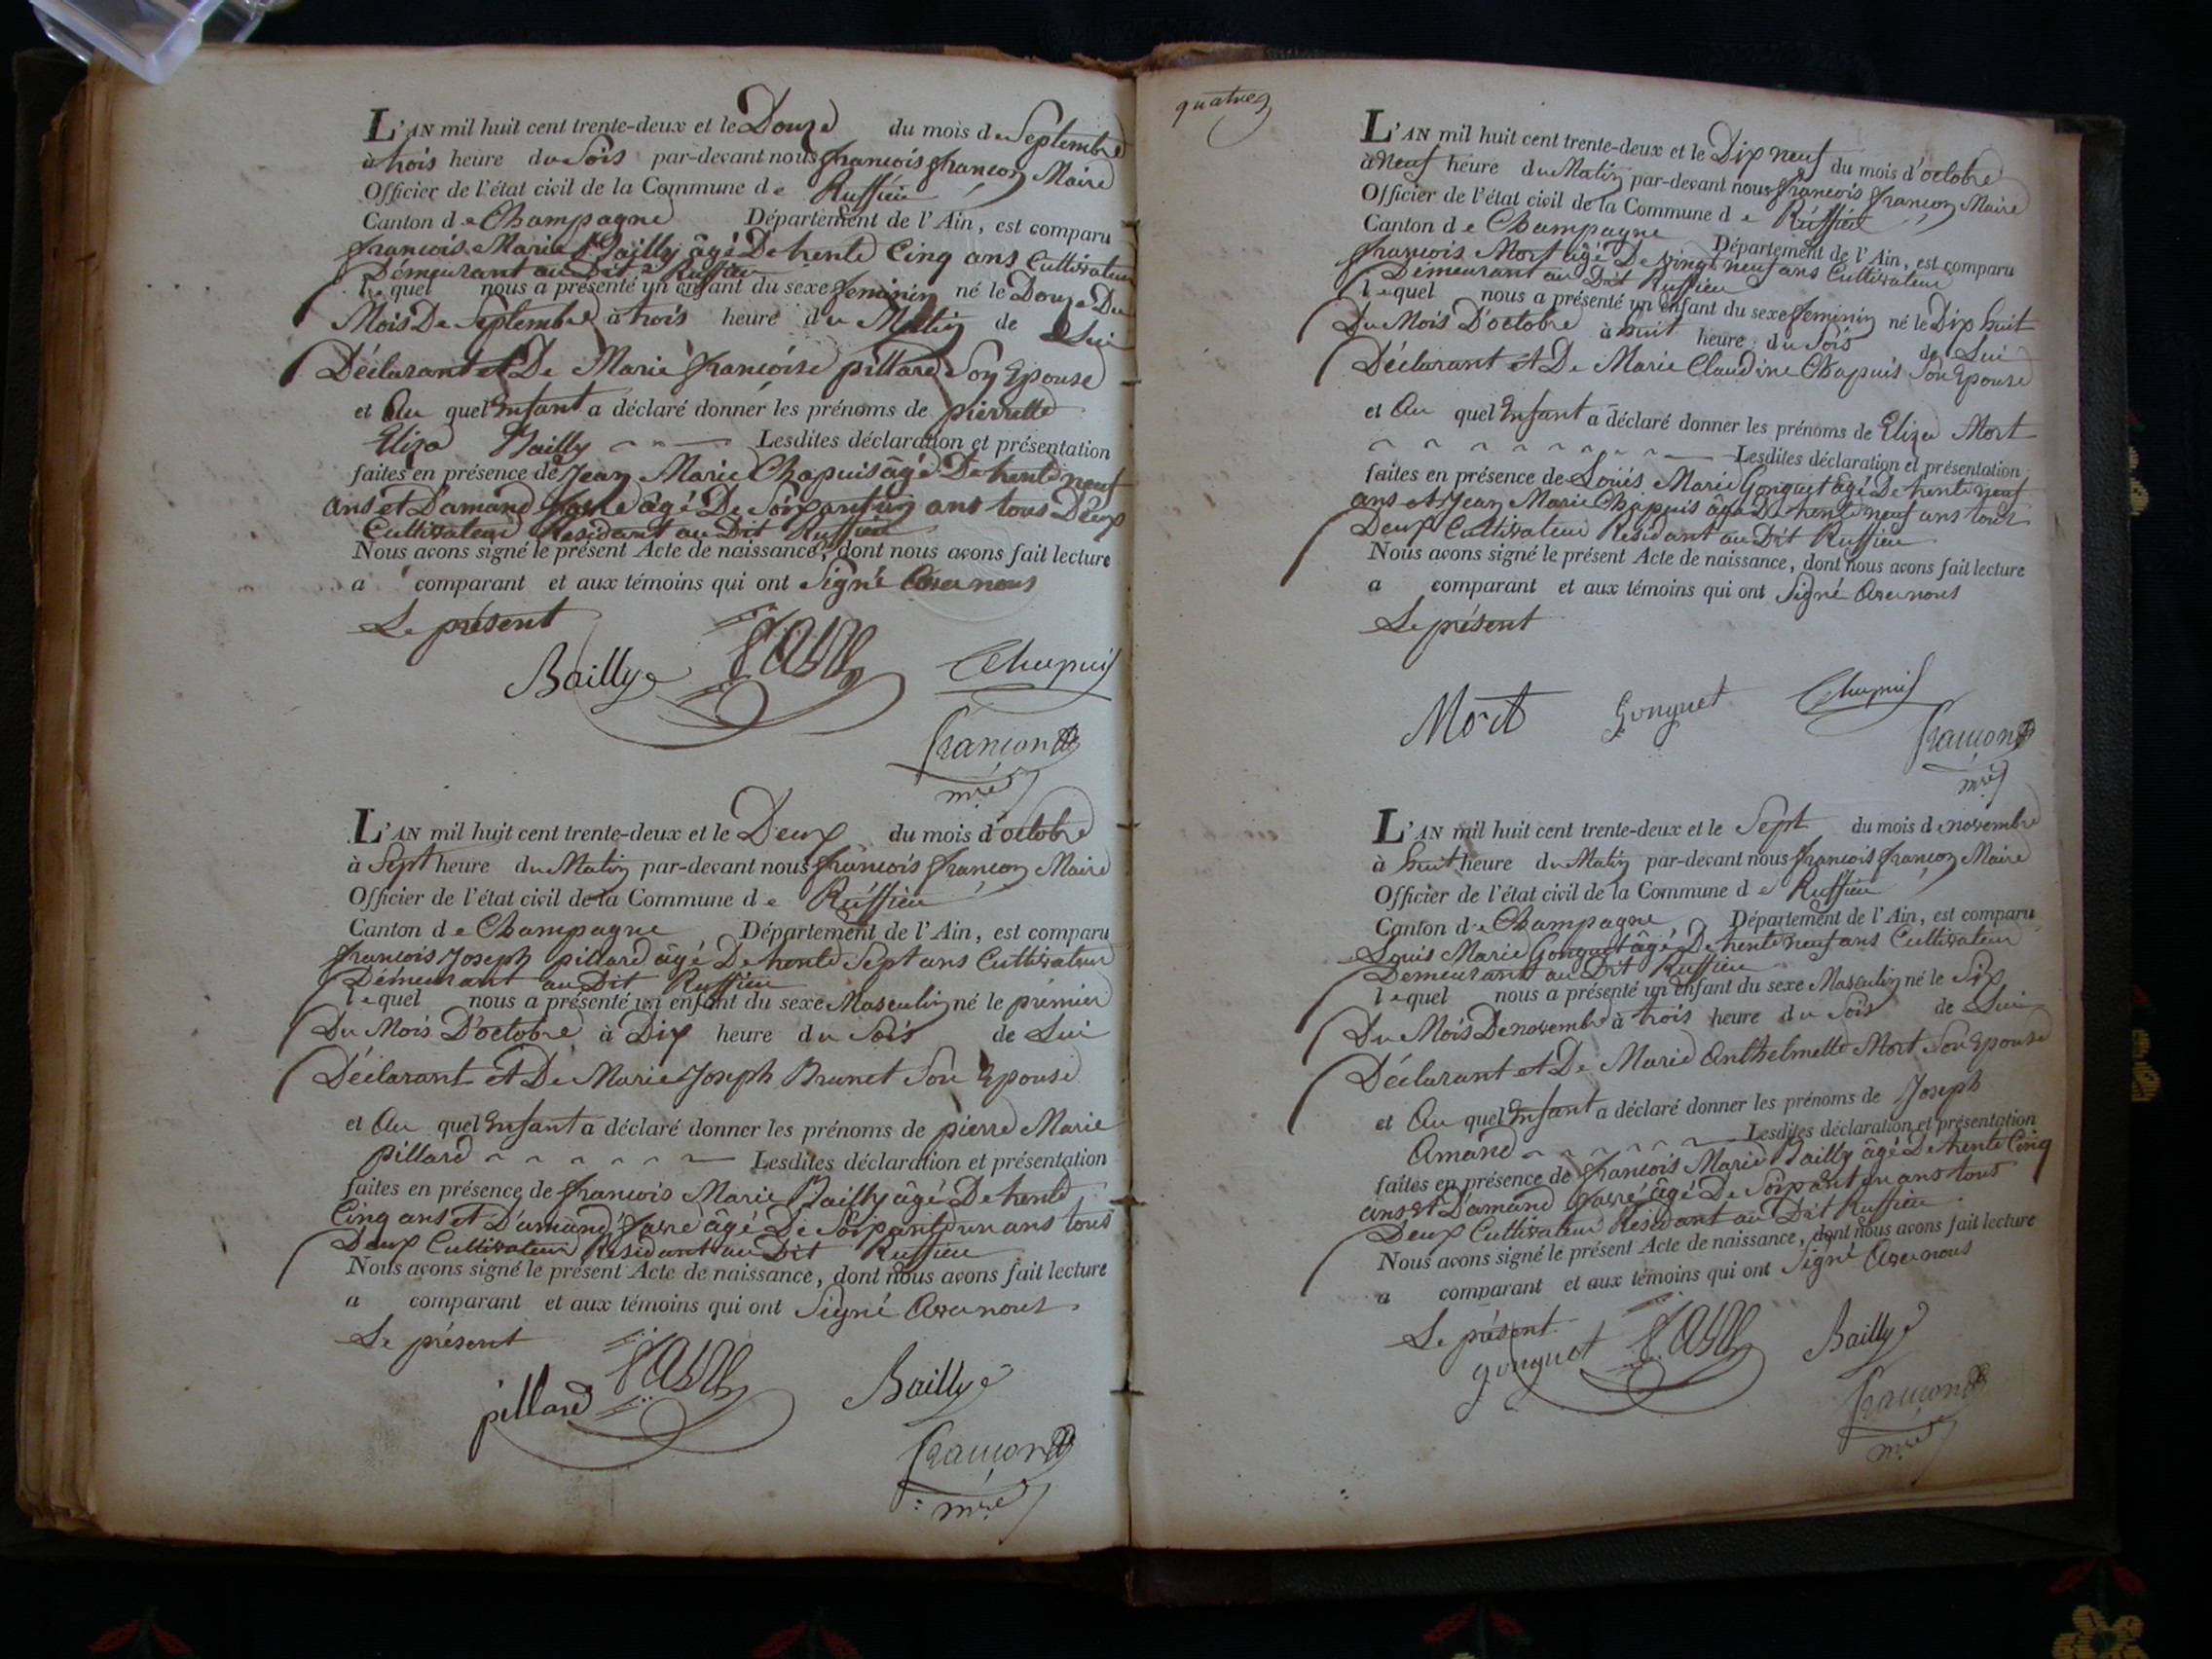 L'AN mil huit cent trente-deux et le Douze du mois de Septembre
à trois heure du Soir par-devant nous françois françon Maire
Officier de l'état civil de la Commune de Ruffieu
Canton de Champagne Département de l'Ain, est comparu
françois Marie Bailly âgé De trente Cinq ans Cultivateur
Demeurant au Dit Ruffieu
lequel nous a présenté un enfant du sexe feminin né le Douze Du
Mois De Septembre à trois heure du Matin de Lui
Déclarant et De Marie françoise pillard Son Epouse
et Au quel Enfant a déclaré donner les prénoms de pierrette
Eliza Bailly Lesdites déclaration et présentation
faites en présence de Jean Marie Chapuis âgé De trente neuf
ans et D'amand favre âgé De Soixante un ans tous Deux
Cultivateur Résidant au Dit Ruffieu
Nous avons signé le présent Acte de naissance, dont nous avons fait lecture
a comparant et aux témoins qui ont Signé Avec nous
Le présent
Bailly favre Chapuis
françon
mre
L'AN mil huit cent trente-deux et le Deux du mois d'octobre
à Sept heure du Matin par-devant nous françois françon Maire
Officier de l'état civil de la Commune de Ruffieu
Canton de Champagne Département de l'Ain, est comparu
françois Joseph pillard âgé De trente Sept ans Cultivateur
Démeurant au Dit Ruffieu
lequel nous a présenté un enfant du sexe Masculin né le prémier
Du Mois D'octobre à Dix heure du Soir de Lui
Déclarant et De Marie Joseph Brunet Son Epouse
et Au quel Enfant a déclaré donner les prénoms de pierre Marie
pillard Lesdites déclaration et présentation
faites en présence de françois Marie Bailly âgé De trente
Cinq ans et D'amand favre âgé De Soixante un ans tous
Deux Cultivateur Résidant au Dit Ruffieu
Nous avons signé le présent Acte de naissance, dont nous avons fait lecture
a comparant et aux témoins qui ont Signé Avec nous
Le présent
pillard favre Bailly
françon
mre
quatre
L'AN mil huit cent trente-deux et le Dix neuf du mois d'octobre
à Neuf heure du Matin par-devant nous françois françon Maire
Officier de l'état civil de la Commune de Ruffieu
Canton de Champagne Département de l'Ain, est comparu
françois Mort âgé De vingt neuf ans Cultivateur
Démeurant au Dit Ruffieu
lequel nous a présenté un enfant du sexe feminin né le Dix huit
Du Mois D'octobre à huit heure du Soir de Lui
Déclarant et De Marie Claudine Chapuis Son Epouse
et Au quel Enfant a déclaré donner les prénoms de Eliza Mort
Lesdites déclaration et présentation
faites en présence de Louis Marie Gonguet âgé De trente neuf
ans et Jean Marie Chapuis âgé De trente neuf ans tous
Deux Cultivateur Résidant au Dit Ruffieu
Nous avons signé le présent Acte de naissance, dont nous avons fait lecture
a comparant et aux témoins qui ont Signé Avec nous
Le présent
Mort Gonguet Chapuis
françon
mre
L'AN mil huit cent trente-deux et le Sept du mois de novembre
à huit heure du Matin par-devant nous françois françon Maire
Officier de l'état civil de la Commune de Ruffieu
Canton de Champagne Département de l'Ain, est comparu
Louis Marie Gonguet âgé De trente neuf ans Cultivateur
Demeurant au Dit Ruffieu
lequel nous a présenté un enfant du sexe Masculin né le Six
Du Mois De novembre à trois heure du Soir de Lui
Déclarant et De Marie Anthelmette Mort Son Epouse
et Au quel Enfant a déclaré donner les prénoms de Joseph
Amand Lesdites déclaration et présentation
faites en présence de françois Marie Bailly âgé De trente Cinq
ans et D'amand favre âgé De Soixante un ans tous
Deux Cultivateur Résidant au Dit Ruffieu
Nous avons signé le présent Acte de naissance, dont nous avons fait lecture
a comparant et aux témoins qui ont Signé Avec nous
Le présent
gonguet favre Bailly
françon
mre